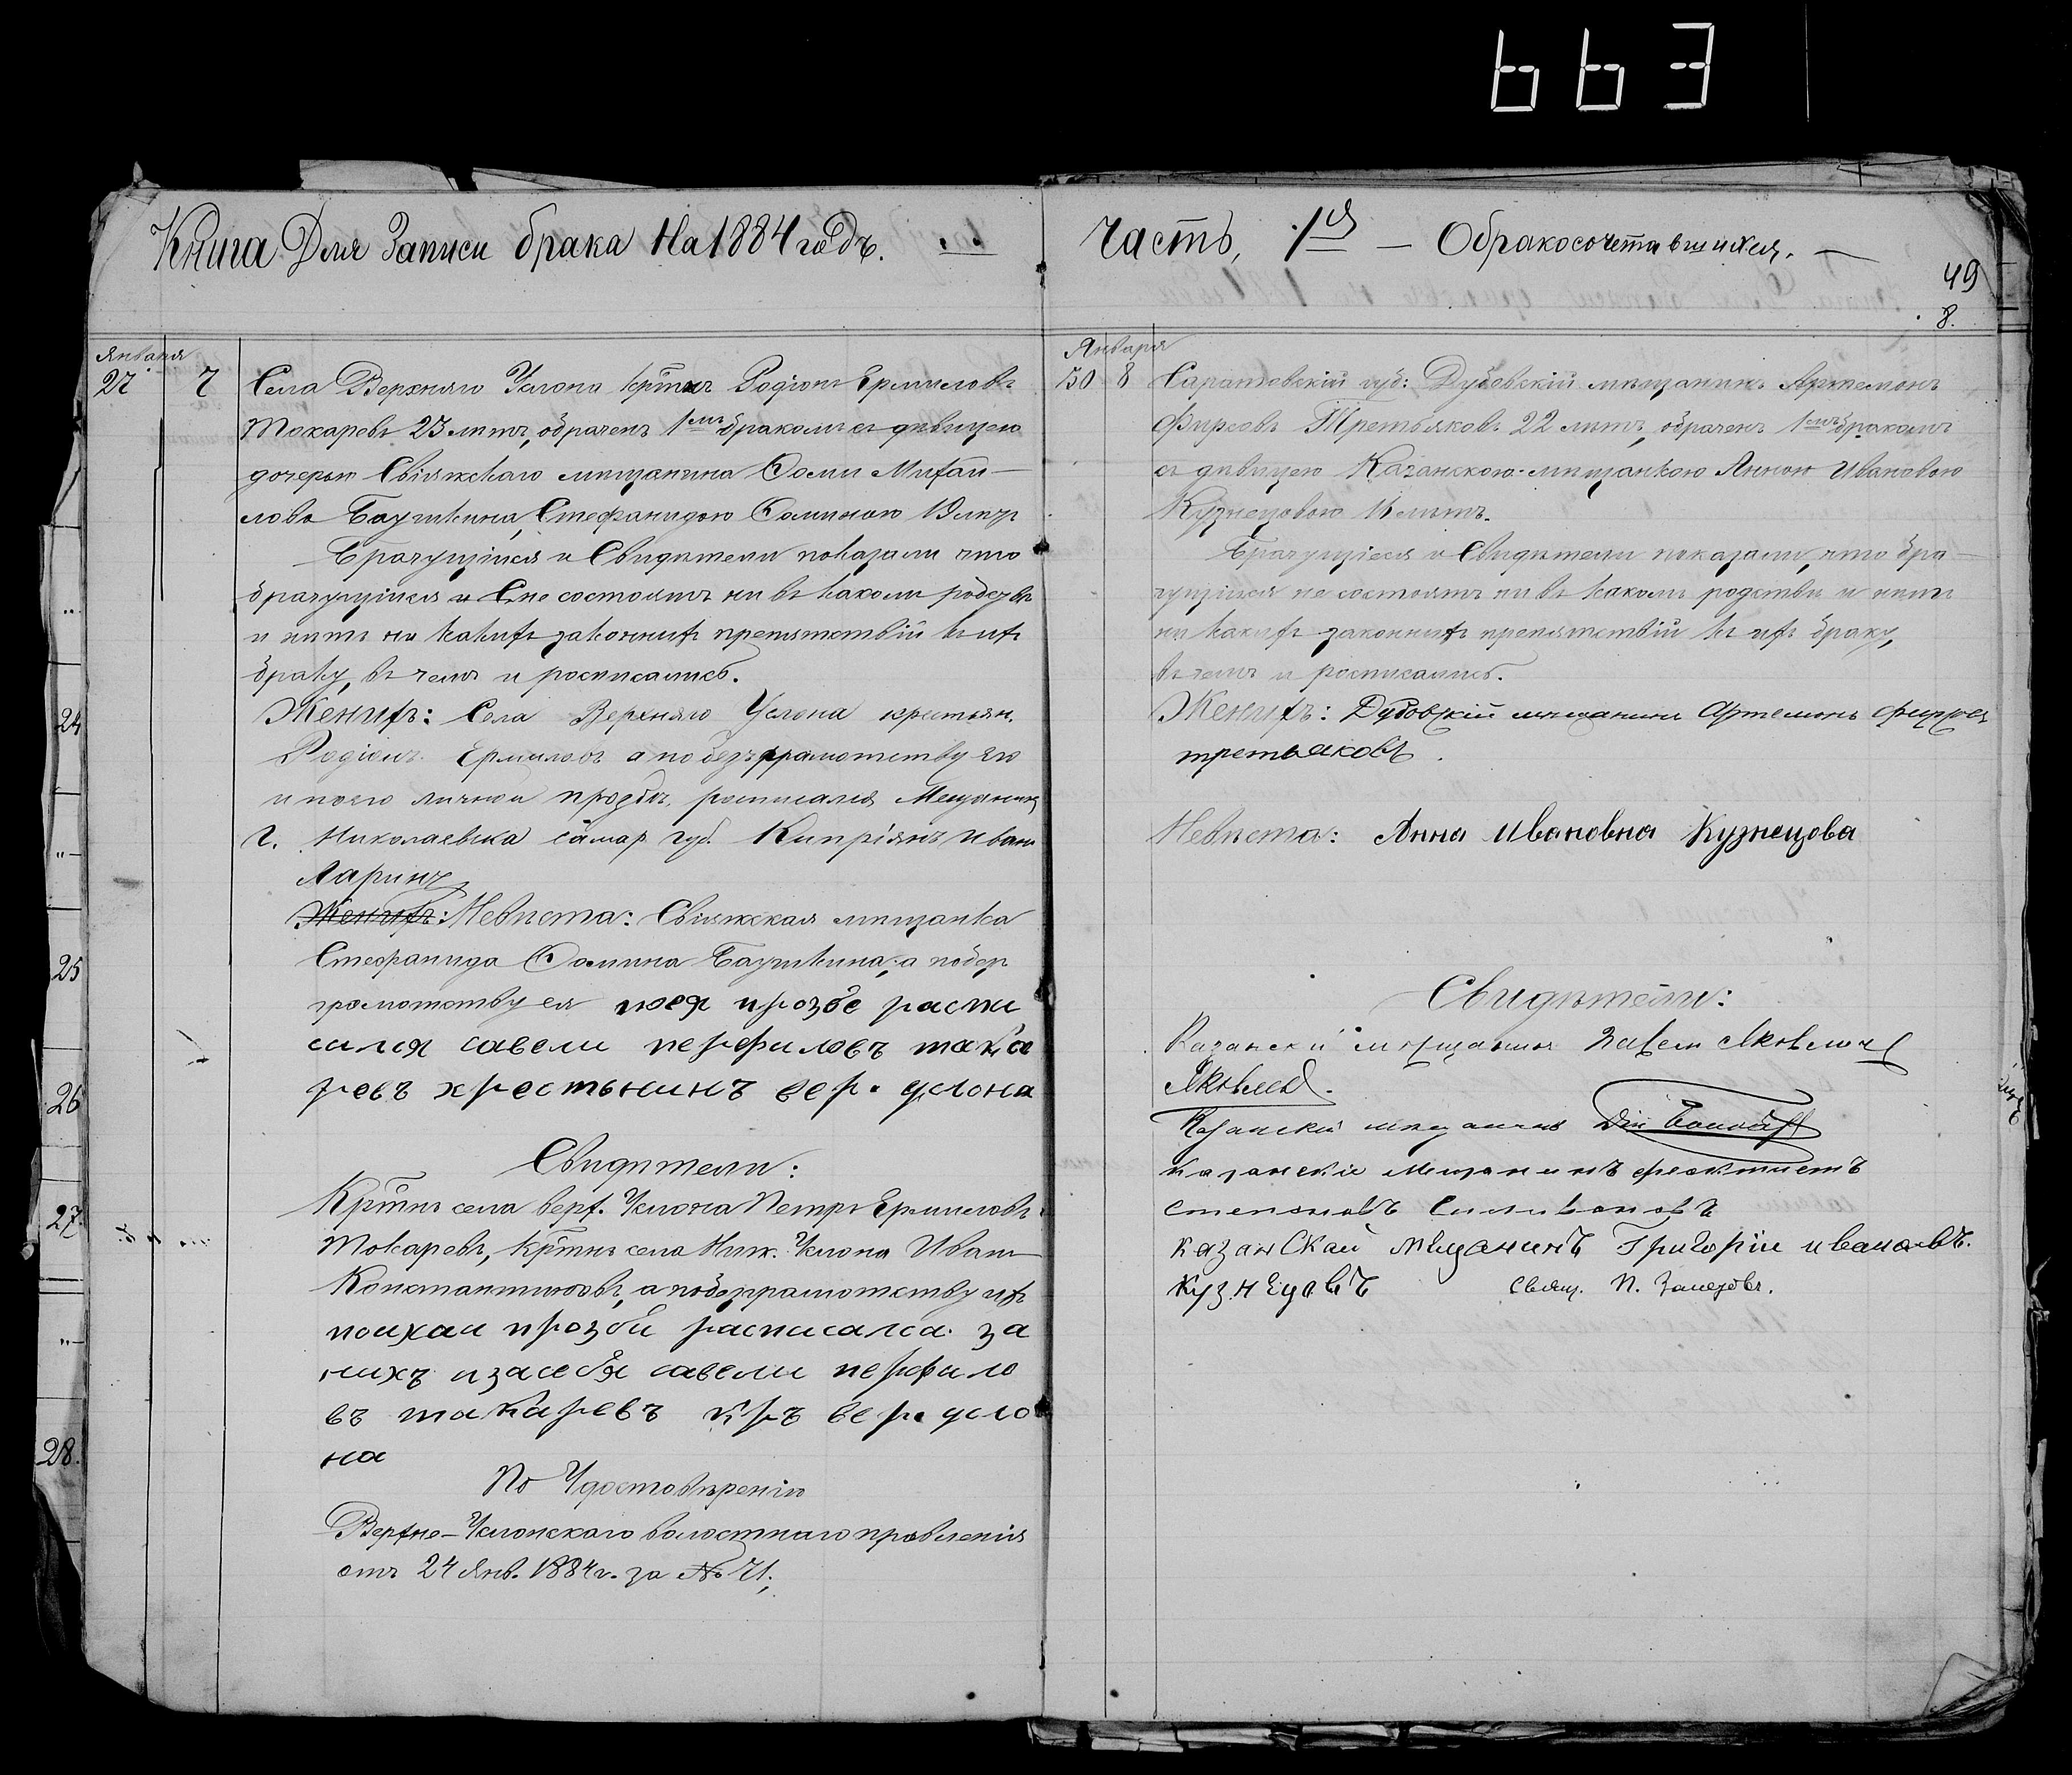 663
Книга Для Записи брака На 1884 годъ.
Января
27 7 Села Верхняго Услона Родіонъ Ермиловъ
Токаревъ 23 лѣтъ, обрачен 1мъ бракомъ съ дѣвицею
дочерью Свіяжскаго мѣщанина Ѳомы Михай-
лова Баушкина, Стефанидою Ѳоминою 19 лѣтъ
Брачущійся и Свидѣтели показали что
брачущійся и С не состоятъ ни въ какомъ родствѣ
и нѣтъ ни какихъ законныхъ препятствій къ ихъ
браку, въ чемъ и росписались.
Женихъ: Села Верхняго Услона крестьян.
Родіонъ Ермиловъ а по безъграмотству его
и по его личной прозбѣ, росписался Мещанинъ
г. Николаевска самар. губ. Кипріянъ Иванъ
Ларинъ
Женихъ: Невѣста: Свіяжская мѣщанка
Стефанида Ѳомина Баушкина, а побез
грамотству ея поея прозбе распи
сался савели перфиловъ тока
ревъ хрестьнинъ вер. услона
Свидѣтели:
Крт҃нъ села верх. Услона Петръ Ермиловъ
Токаревъ, крт҃нъ села Ниж. Услона Иванъ
Константиновъ, а побезграмотству ихъ
поихаи прозби расписалса за
нихъ изасебя савели перфило
въ такаревъ кръ вер. усло
на
По Удостовѣренію
Верхне-Услонскаго волостнаго правленія
отъ 24 Янв. 1884 г. за № 71;
24
25
26
27
28.
Часть, 1я — О бракосочетавшихся. —
49
8.
Января
30 8 Саратовскій губ: Дубовскій мѣщанинъ Артемонъ
Фирсовъ Третьяковъ 22 лѣтъ, обрачен 1мъ бракомъ
съ дѣвицею Казанскою мѣщанкою Анною Ивановою
Кузнецовою лѣтъ.
Брачущіеся и Свидѣтели показали, что бра-
чущійся не состоятъ ни въ какомъ родствѣ и нѣтъ
ни какихъ законныхъ препятствій къ ихъ браку,
въ чемъ и росписались.
Женихъ: Дубовскій мѣщанинъ Артемонъ Фирсов
третьяковъ.
Невѣста: Анна Ивановна Кузнецова
Свидѣтели:
Казанскй мѣщанинъ Павелъ Яковлич
Яковлев.
Казанскій мѣщанинъ
казанскіе Мещанинъ феоктистъ
степоновъ Силивановъ
казанСкай мѣщанинъ Григоріи ивановъ.
Кузнецовъ свящ. П. Залетовъ.